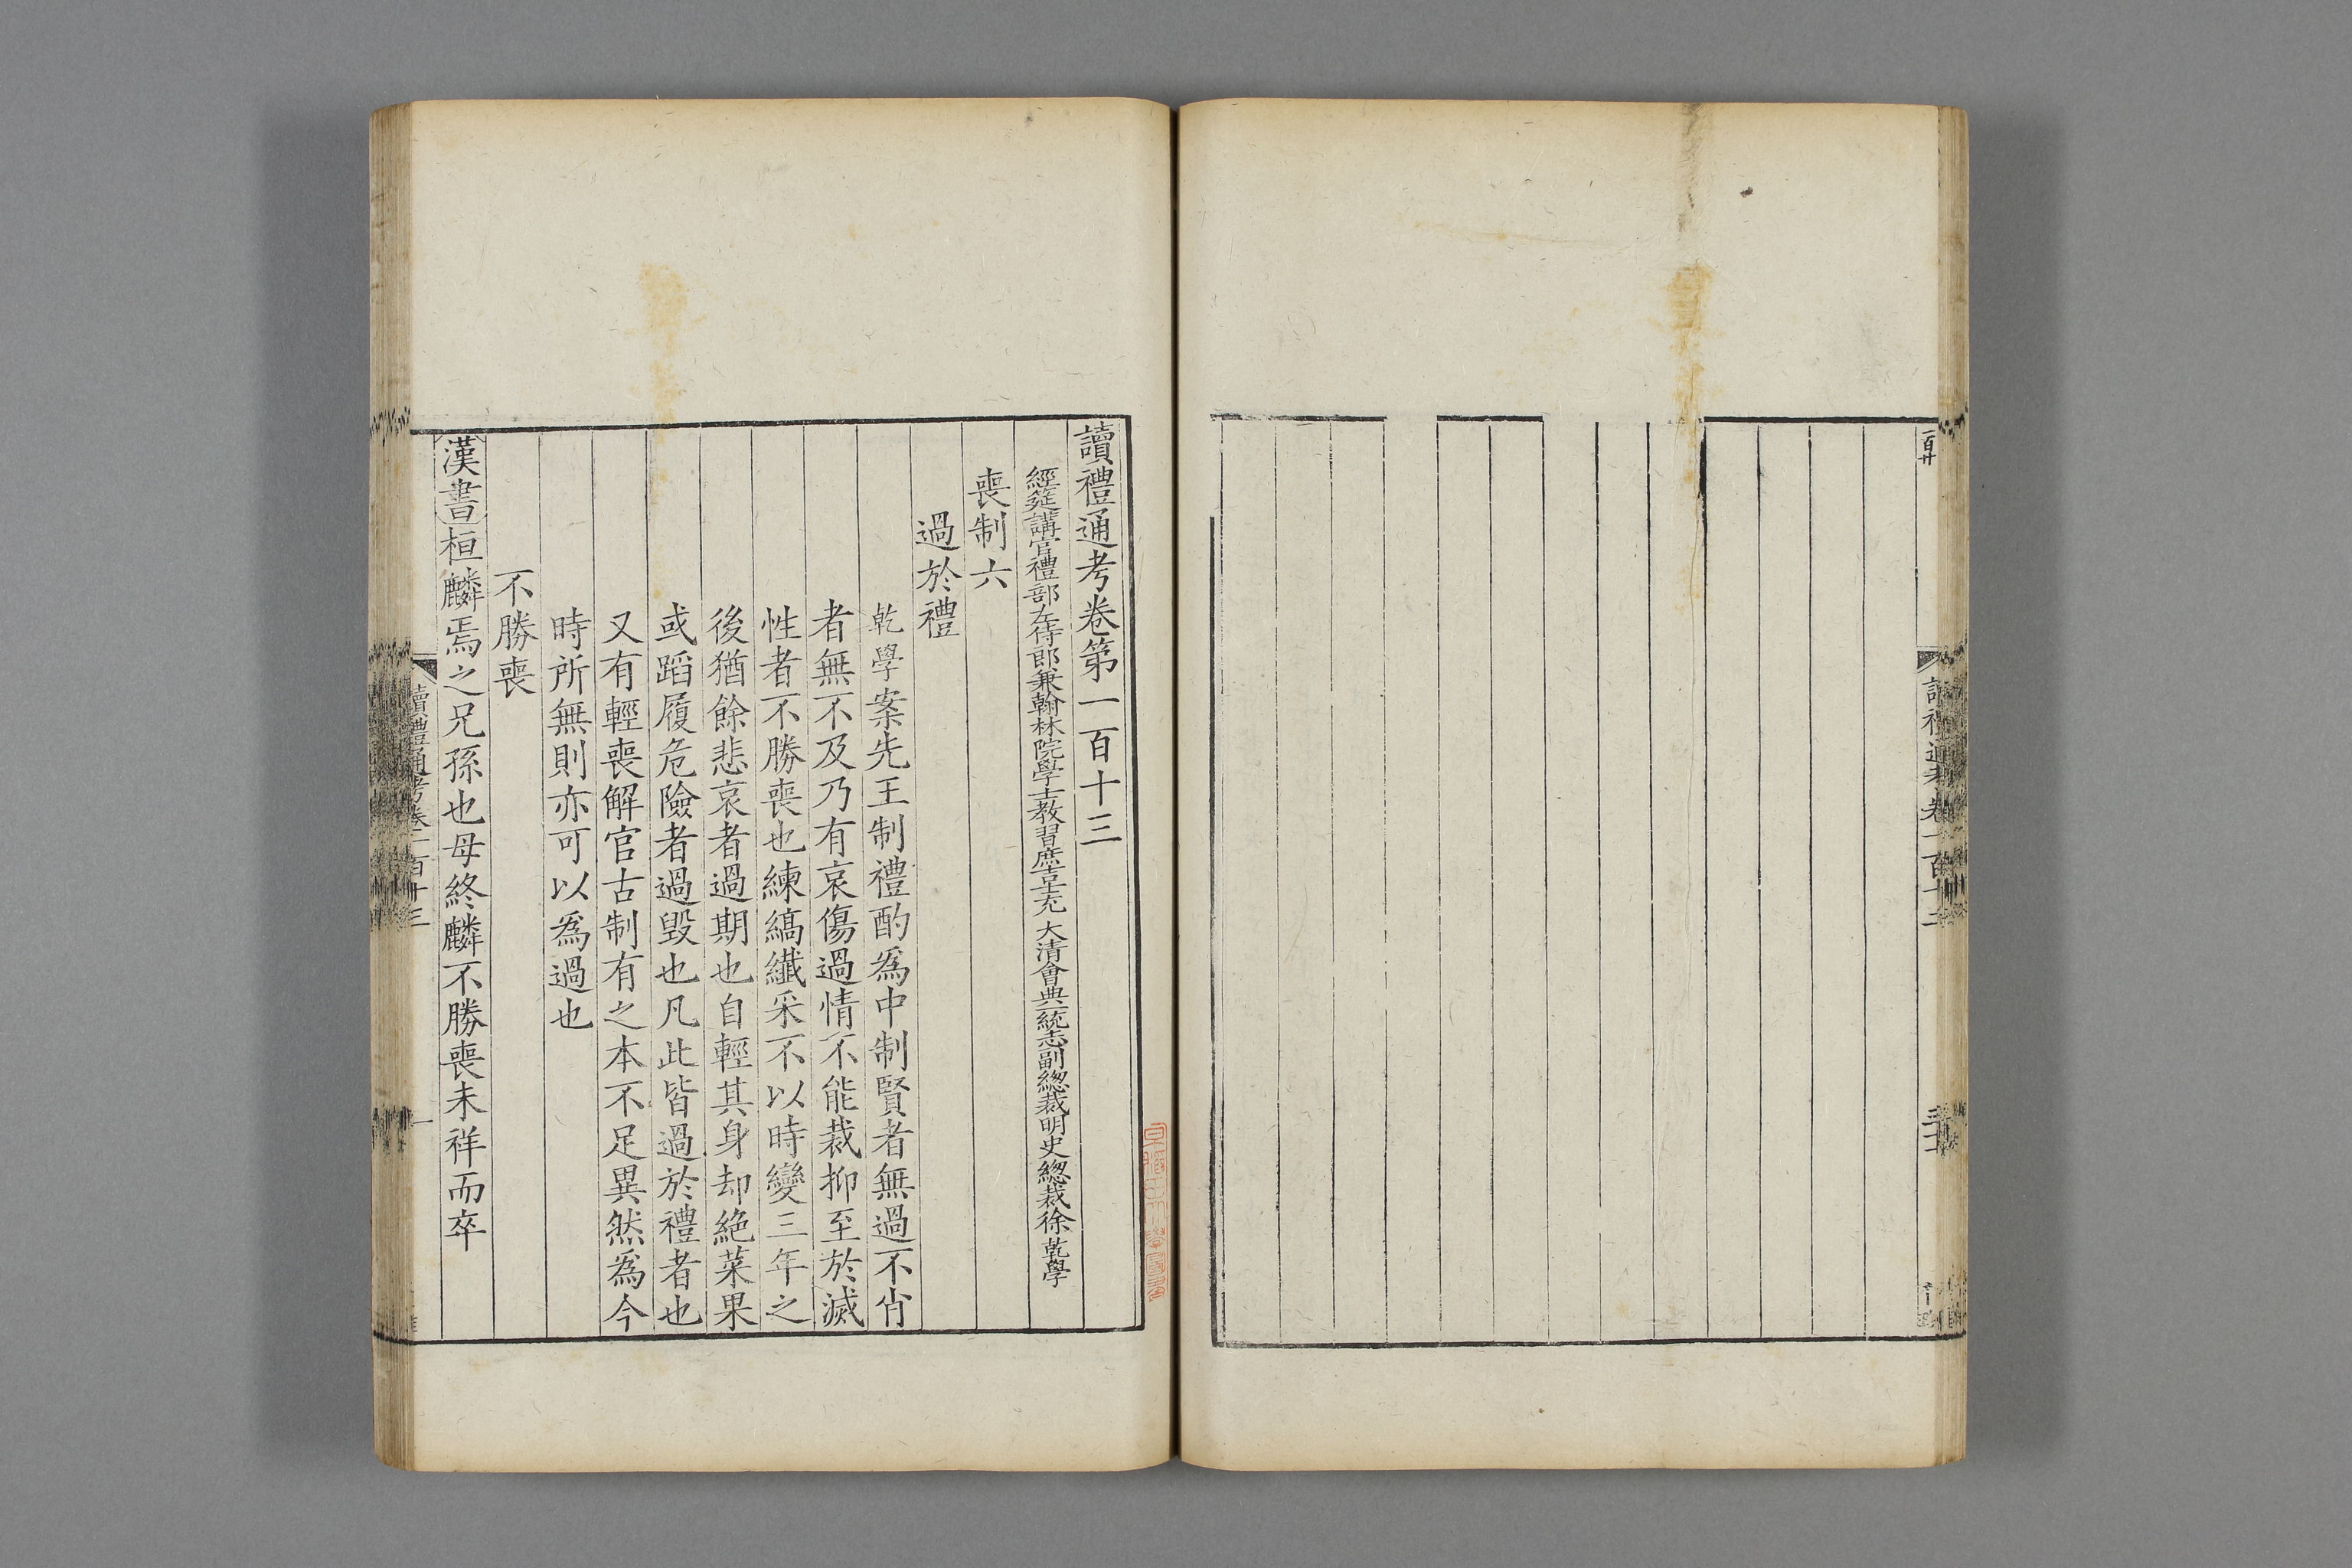 讀禮通考卷第一百十三
經筵講官禮部左侍郎兼翰林院學士教習庶吉士充 大清會典一統志副總裁明史總裁徐乾學
喪制六
過於禮
乾學案先王制禮酌爲中制賢者無過不肖
者無不及乃有哀傷過情不能裁抑至於滅
性者不勝喪也練縞纖采不以時變三年之
後猶餘悲哀者過期也自輕其身却絶菜果
或蹈履危險者過毁也凡此皆過於禮者也
又有輕喪解官古制有之本不足異然爲今
時所無則亦可以爲過也
不勝喪
漢書桓麟焉之兄孫也母終麟不勝喪未祥而卒
讀禮通考卷一百十三
一